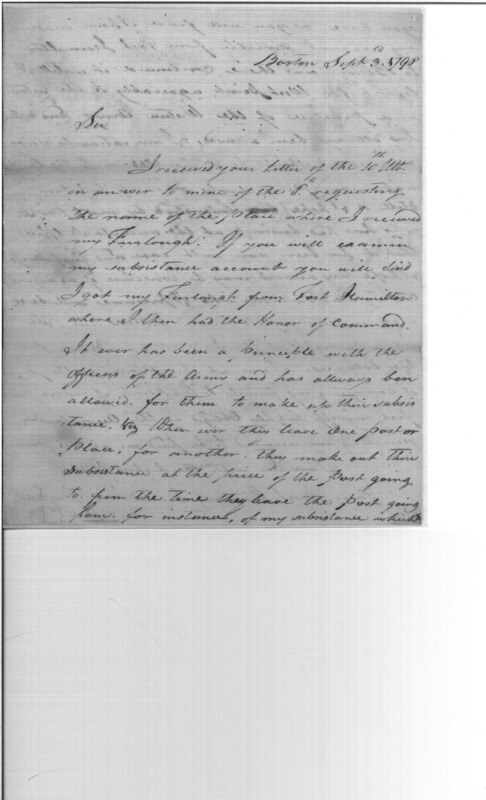 Boston Sept 3d. 1798
Sir
I received your Letter of the 10th Ult.
in answer to mine of the 8th requesting
the name of the place where I received
my Furlough. If you will examin
my subsistance account you will find
I got my Furlough from Fort Hamilton
where I then had the Honor of Command.
It ever has been a Principle with the
Officers of the Army and has allways ben
allowed. for them to make up their subsis
tance. When ever they leave One post or
Place, for another. they make out their
Subsistance at the price of the Post going
to. from the time they leave the Post going
from. for instance, of my subsistance which